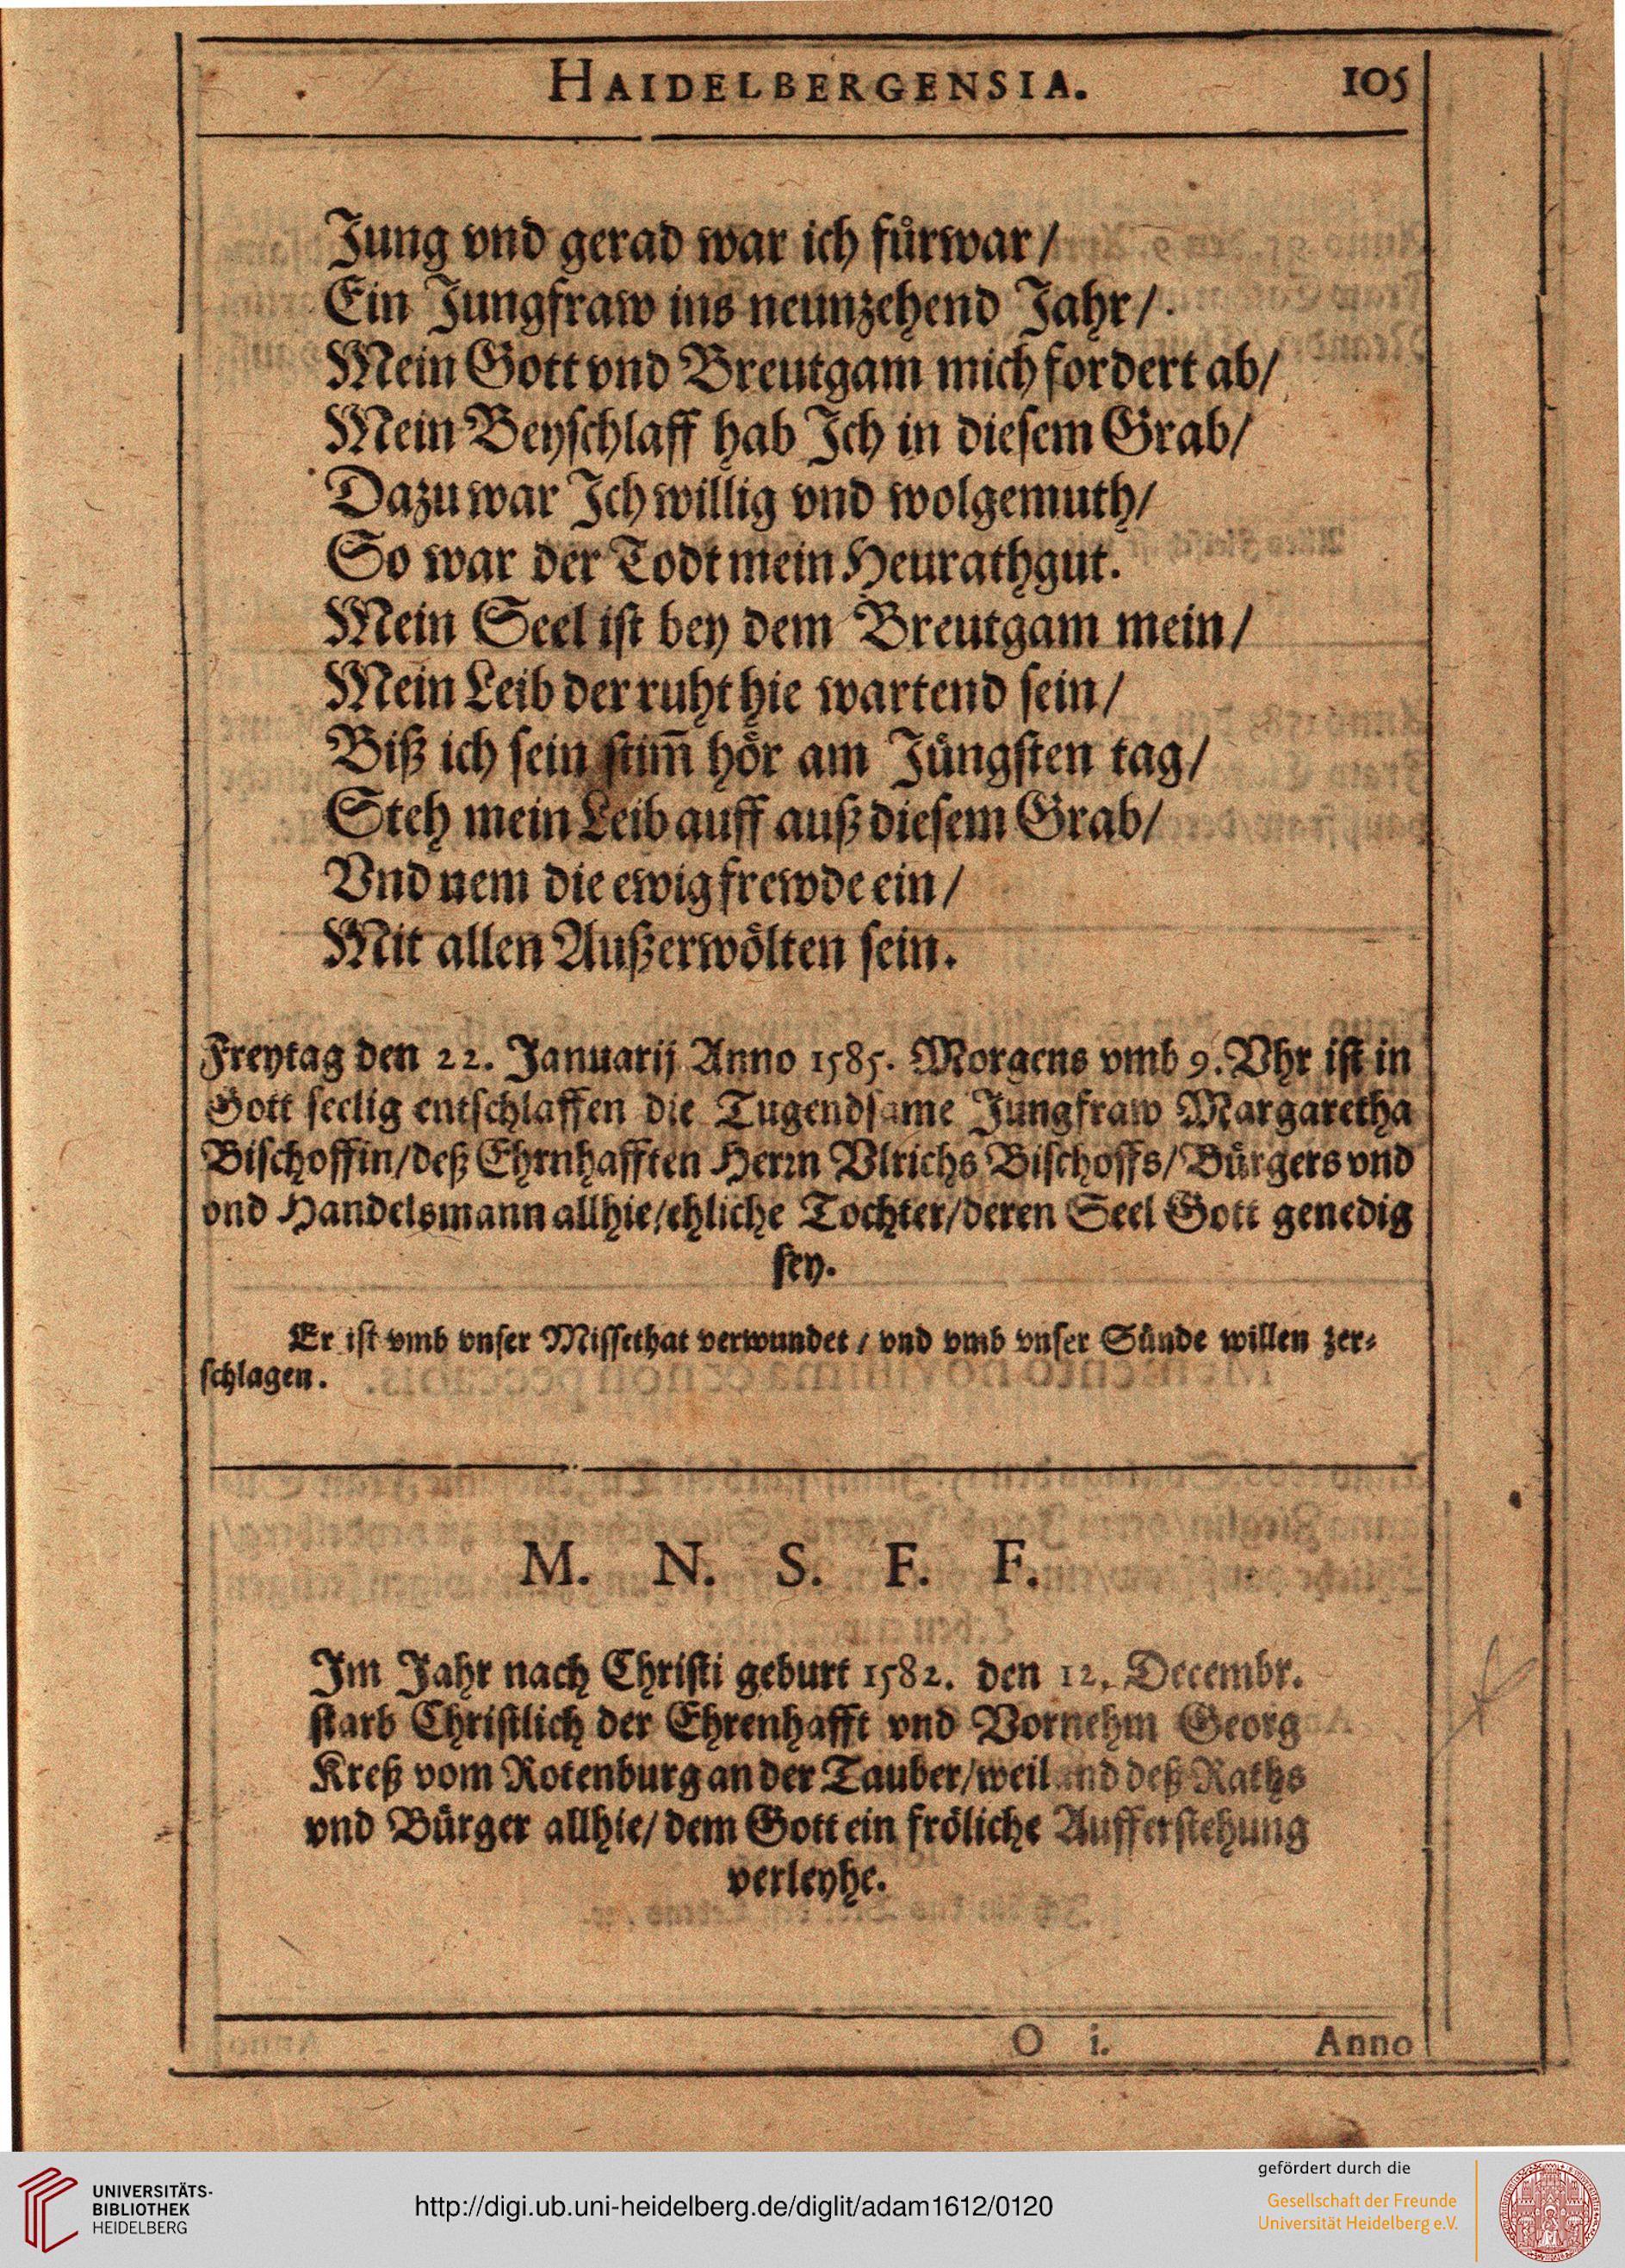 HAIDELBERGENSIA. 105
Jung vnd gerad war ich fuͤrwar/
Ein Jungfraw ins neunzehend Jahr/
Mein Gott vnd Breutgam mich fordert ab/
Mein Beyschlaff hab Jch in diesem Grab/
Dazu war Jch willig vnd wolgemuth/
So war der Todt mein Heurathgut.
Mein Seel ist bey dem Breutgam mein/
Mein Leib der ruht hie wartend sein/
Biß ich sein stim̃ hoͤr am Juͤngsten tag/
Steh mein Leib auff auß diesem Grab/
Vnd nem die ewig frewde ein/
Mit allen Außerwoͤlten sein.
Freytag den 22. Januarij Anno 1585. Morgens vmb 9. Vhr ist in
Gott seelig entschlaffen die Tugendsame Jungfraw Margaretha
Bischoffin/deß Ehrnhafften Herrn Vlrichs Bischoffs/Buͤrgers vnd
vnd Handelsmann allhie/ehliche Tochter/deren Seel Gott genedig
sey.
Er ist vmb vnser Missethat verwundet / vnd vmb vnser Suͤnde willen zer-
schlagen.
M. N. S. F. F.
Jm Jahr nach Christi geburt 1582. den 12. Decembr.
starb Christlich der Ehrenhafft vnd Vornehm Georg
Kreß vom Rotenburg an der Tauber/weiland deß Raths
vnd Buͤrger allhie/dem Gott ein froͤliche Aufferstehung
verleyhe.
O i. Anno
UNIVERSITÄTS-
BIBLIOTHEK
HEIDELBERG
http://digi.ub.uni-heidelberg.de/diglit/adam1612/0120
gefördert durch die
Gesellschaft der Freunde
Universität Heidelberg e.V.